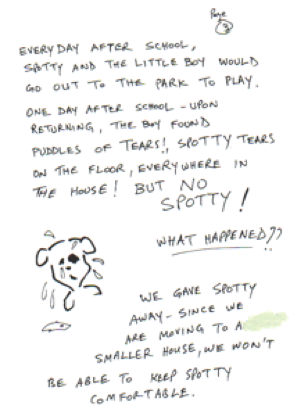 Page
3
EVERYDAY AFTER SCHOOL,
SPOTTY AND THE LITTLE BOY WOULD
GO OUT TO THE PARK TO PLAY.
ONE DAY AFTER SCHOOL - UPON
RETURNING, THE BOY FOUND
PUDDLES OF TEARS!, SPOTTY TEARS
ON THE FLOOR, EVERYWHERE IN
THE HOUSE! BUT NO
SPOTTY!
WHAT HAPPENED??
WE GAVE SPOTTY
AWAY - SINCE WE
ARE MOVING TO A
SMALLER HOUSE, WE WON'T
BE ABLE TO KEEP SPOTTY
COMFORTABLE.